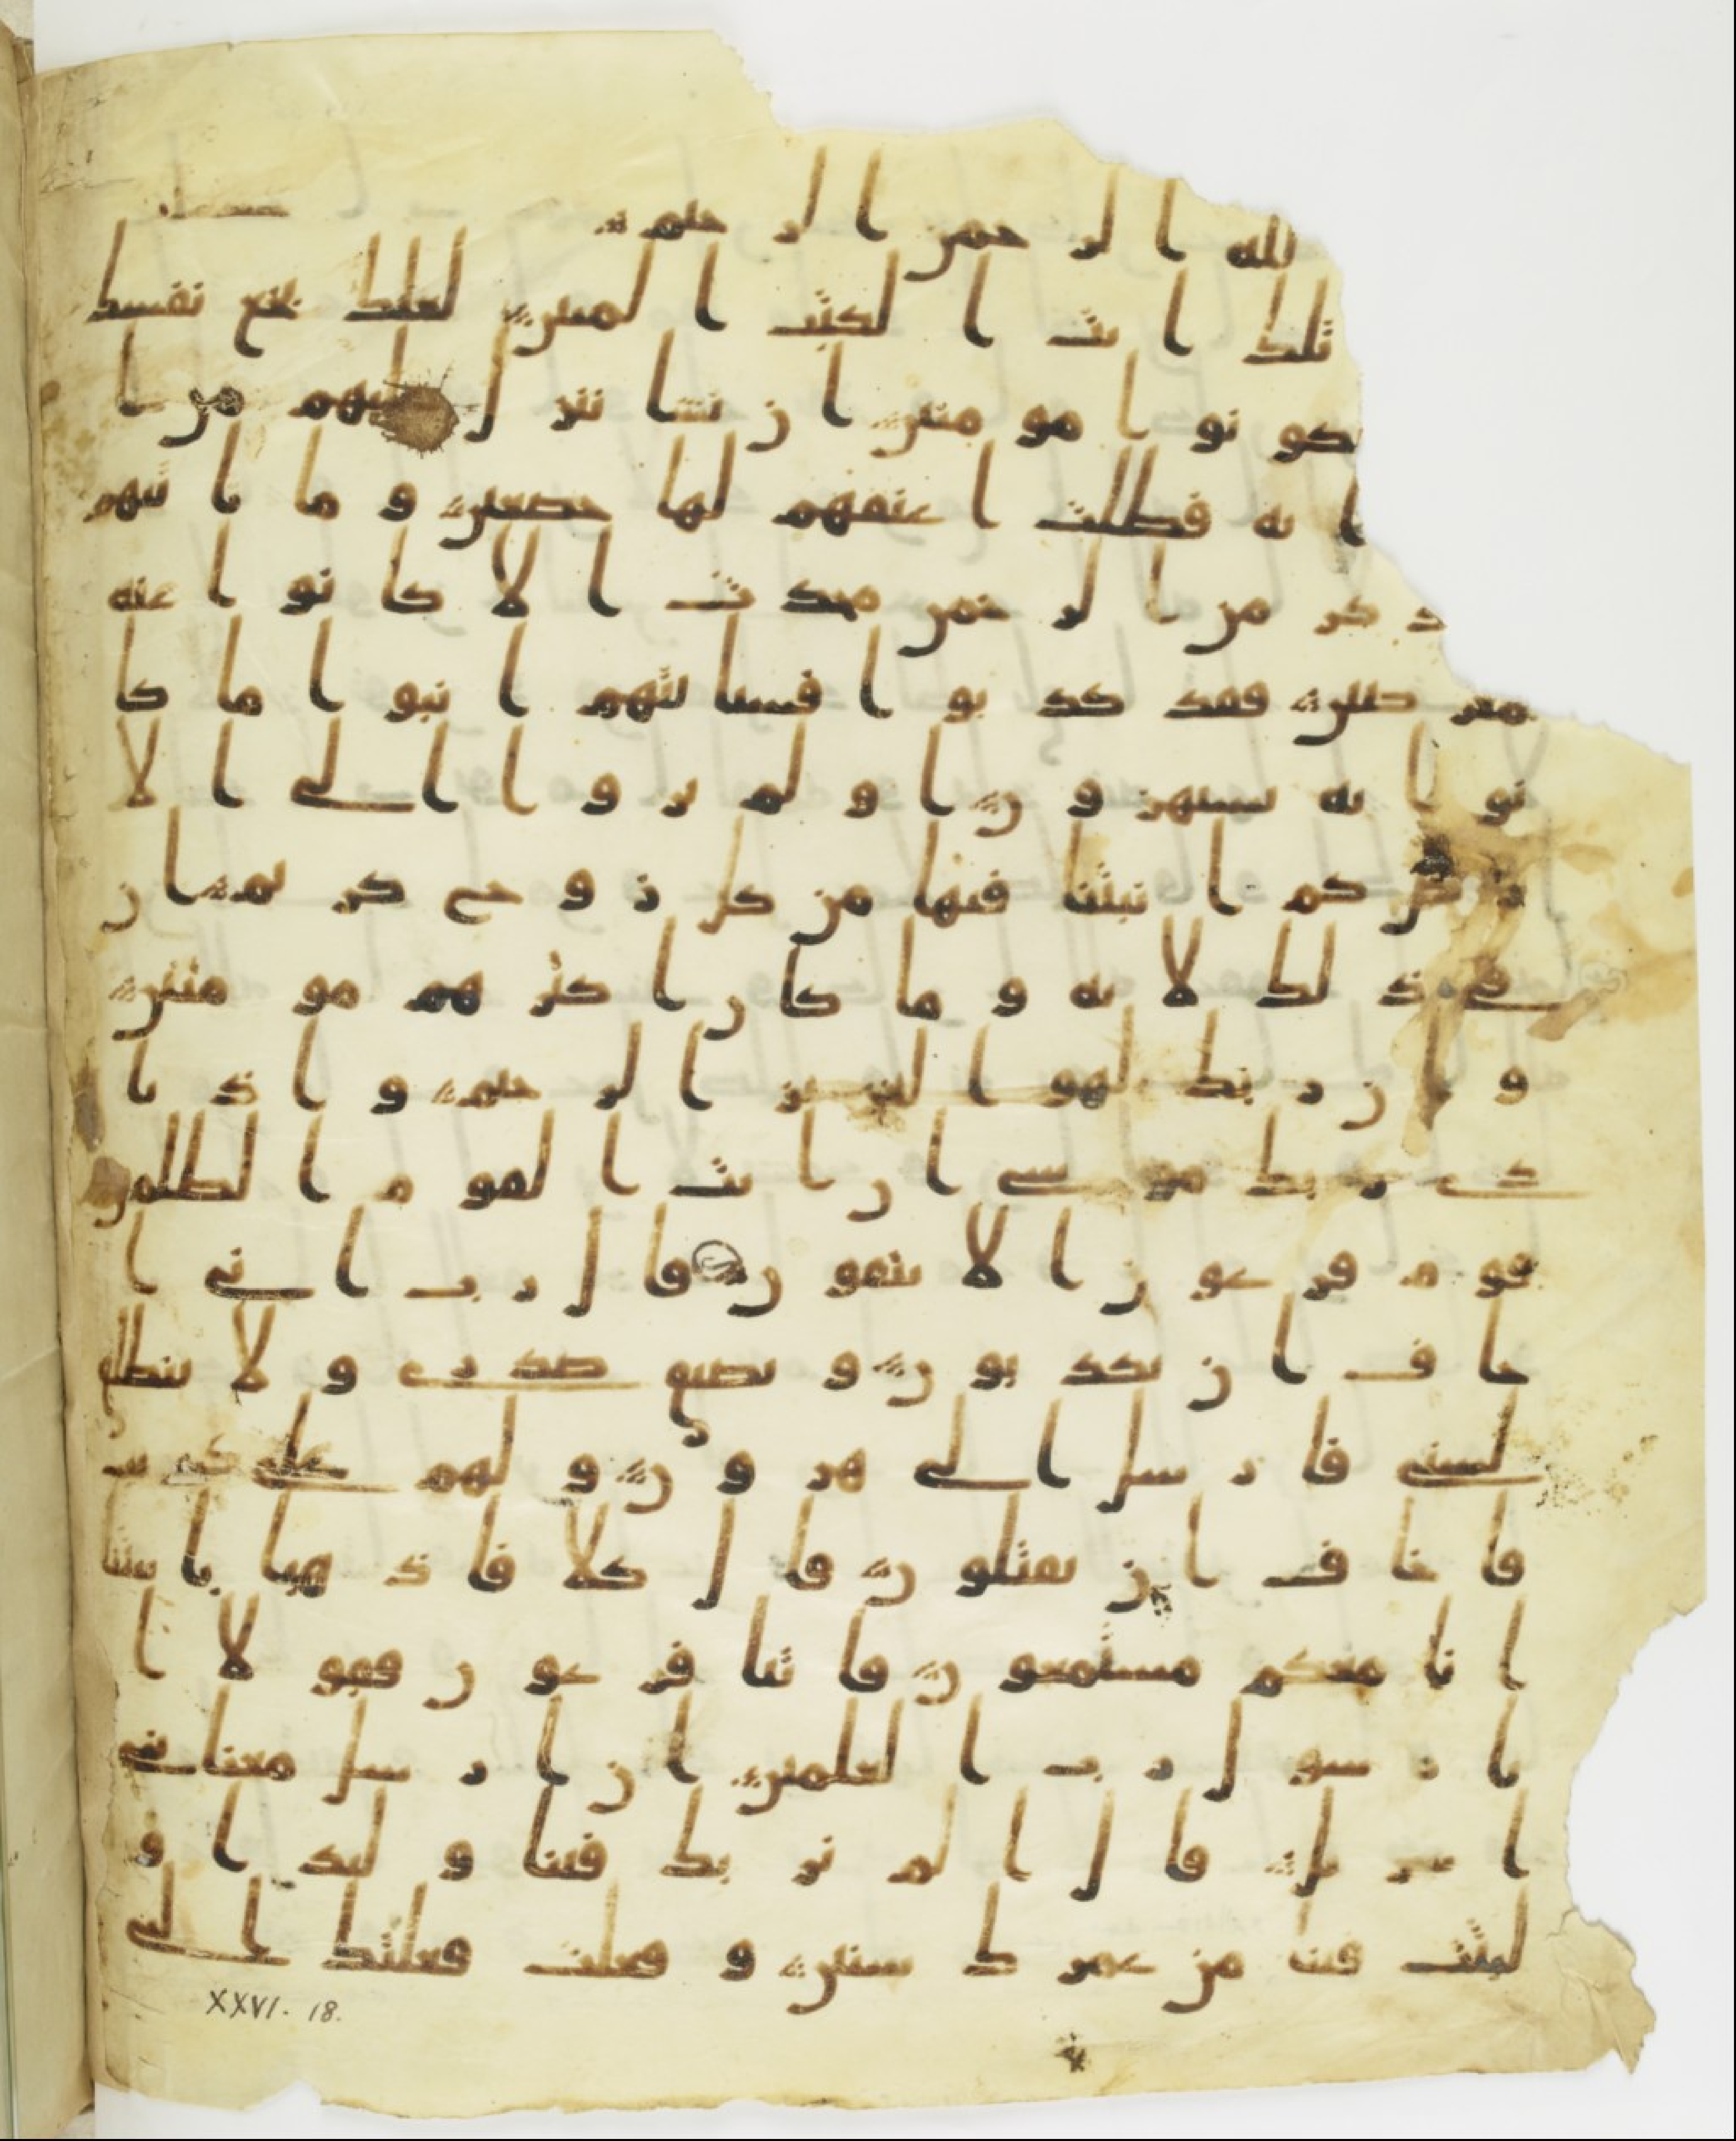 لله الرحمن الرحيم
تلك ايت الكتب المبين لعلك بخع نفسك
يكونوا مومنين ان نشا ننزل عليهم من ا
اية فظلت اعنقهم لها خضعين وما ياتيهم
ذكر من الرحمن محدث الا كانوا عنه
معرضين فقد كذبوا فسياتيهم انبوا ما كا
نوا به يستهزون اولم يروا الى الا
رض كم انبتنا فيها من كل زوج كريم ان
في ذلك لاية وما كان اكثرهم مومنين
وان ربك لهو العزيز الرحيم واذ نا
دى ربك موسى ان ايت القوم الظلمين
قوم فرعون الا يتقون قال رب اني ا
خاف ان يكذبون ويضيق صدري ولا ينطلق
لسني فارسل الى هرون ولهم علي ذنب
فاخاف ان يقتلون قال كلا فاذهبا بايتنا
انا معكم مستمعون فاتيا فرعون فقولا ا
نا رسول رب العلمين ان ارسل معنا بني
اسريل قال الم نربك فينا وليدا و
لبثت فينا من عمرك سنين وفعلت فعلتك التي
XXVI. 18.